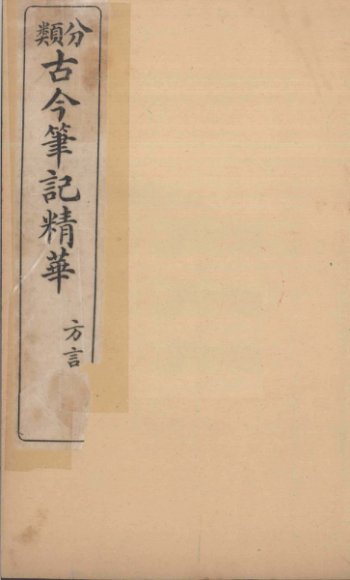 分類
古今筆記精華
方言